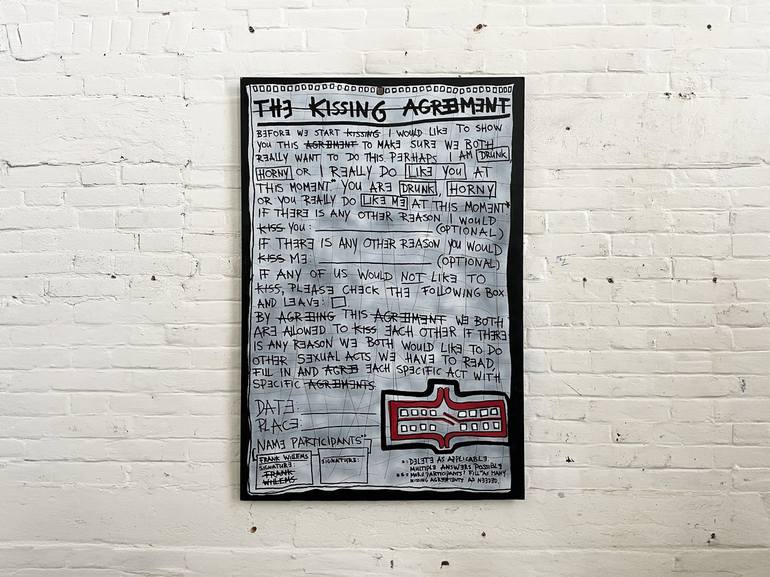 THE KISSING AGREEMENT
BEFORE WE START KISSING I WOULD LIKE TO SHOW
YOU THIS AGREEMENT TO MAKE SURE WE BOTH
REALLY WANT TO DO THIS PERHAPS I AM DRUNK,
HORNY OR I REALLY DO LIKE YOU AT
THIS MOMENT* YOU ARE DRUNK, HORNY
OR YOU REALLY DO LIKE ME AT THIS MOMENT*
IF THERE IS ANY OTHER REASON I WOULD
KISS YOU: (OPTIONAL)
IF THERE IS ANY OTHER REASON YOU WOULD
KISS ME: (OPTIONAL)
IF ANY OF US WOULD NOT LIKE TO
KISS, PLEASE CHECK THE FOLLOWING BOX
AND LEAVE:
BY AGREEING THIS AGREEMENT WE BOTH
ARE ALLOWED TO KISS EACH OTHER IF THERE
IS ANY REASON WE BOTH WOULD LIKE TO DO
OTHER SEXUAL ACTS WE HAVE TO READ,
FILL IN AND AGREE EACH SPECIFIC ACT WITH
SPECIFIC AGREEMENTS.
DATE:
PLACE:
NAME PARTICIPANTS**
FRANK WILLEMS
SIGNATURE:
FRANK
WILLEMS
SIGNATURE:
*: DELETE AS APPLICABLE.
MULTIPLE ANSWERS POSSIBLE
**: MORE PARTICIPANTS? FILL AS MANY
KISSING AGREEMENTS AS NEEDED.